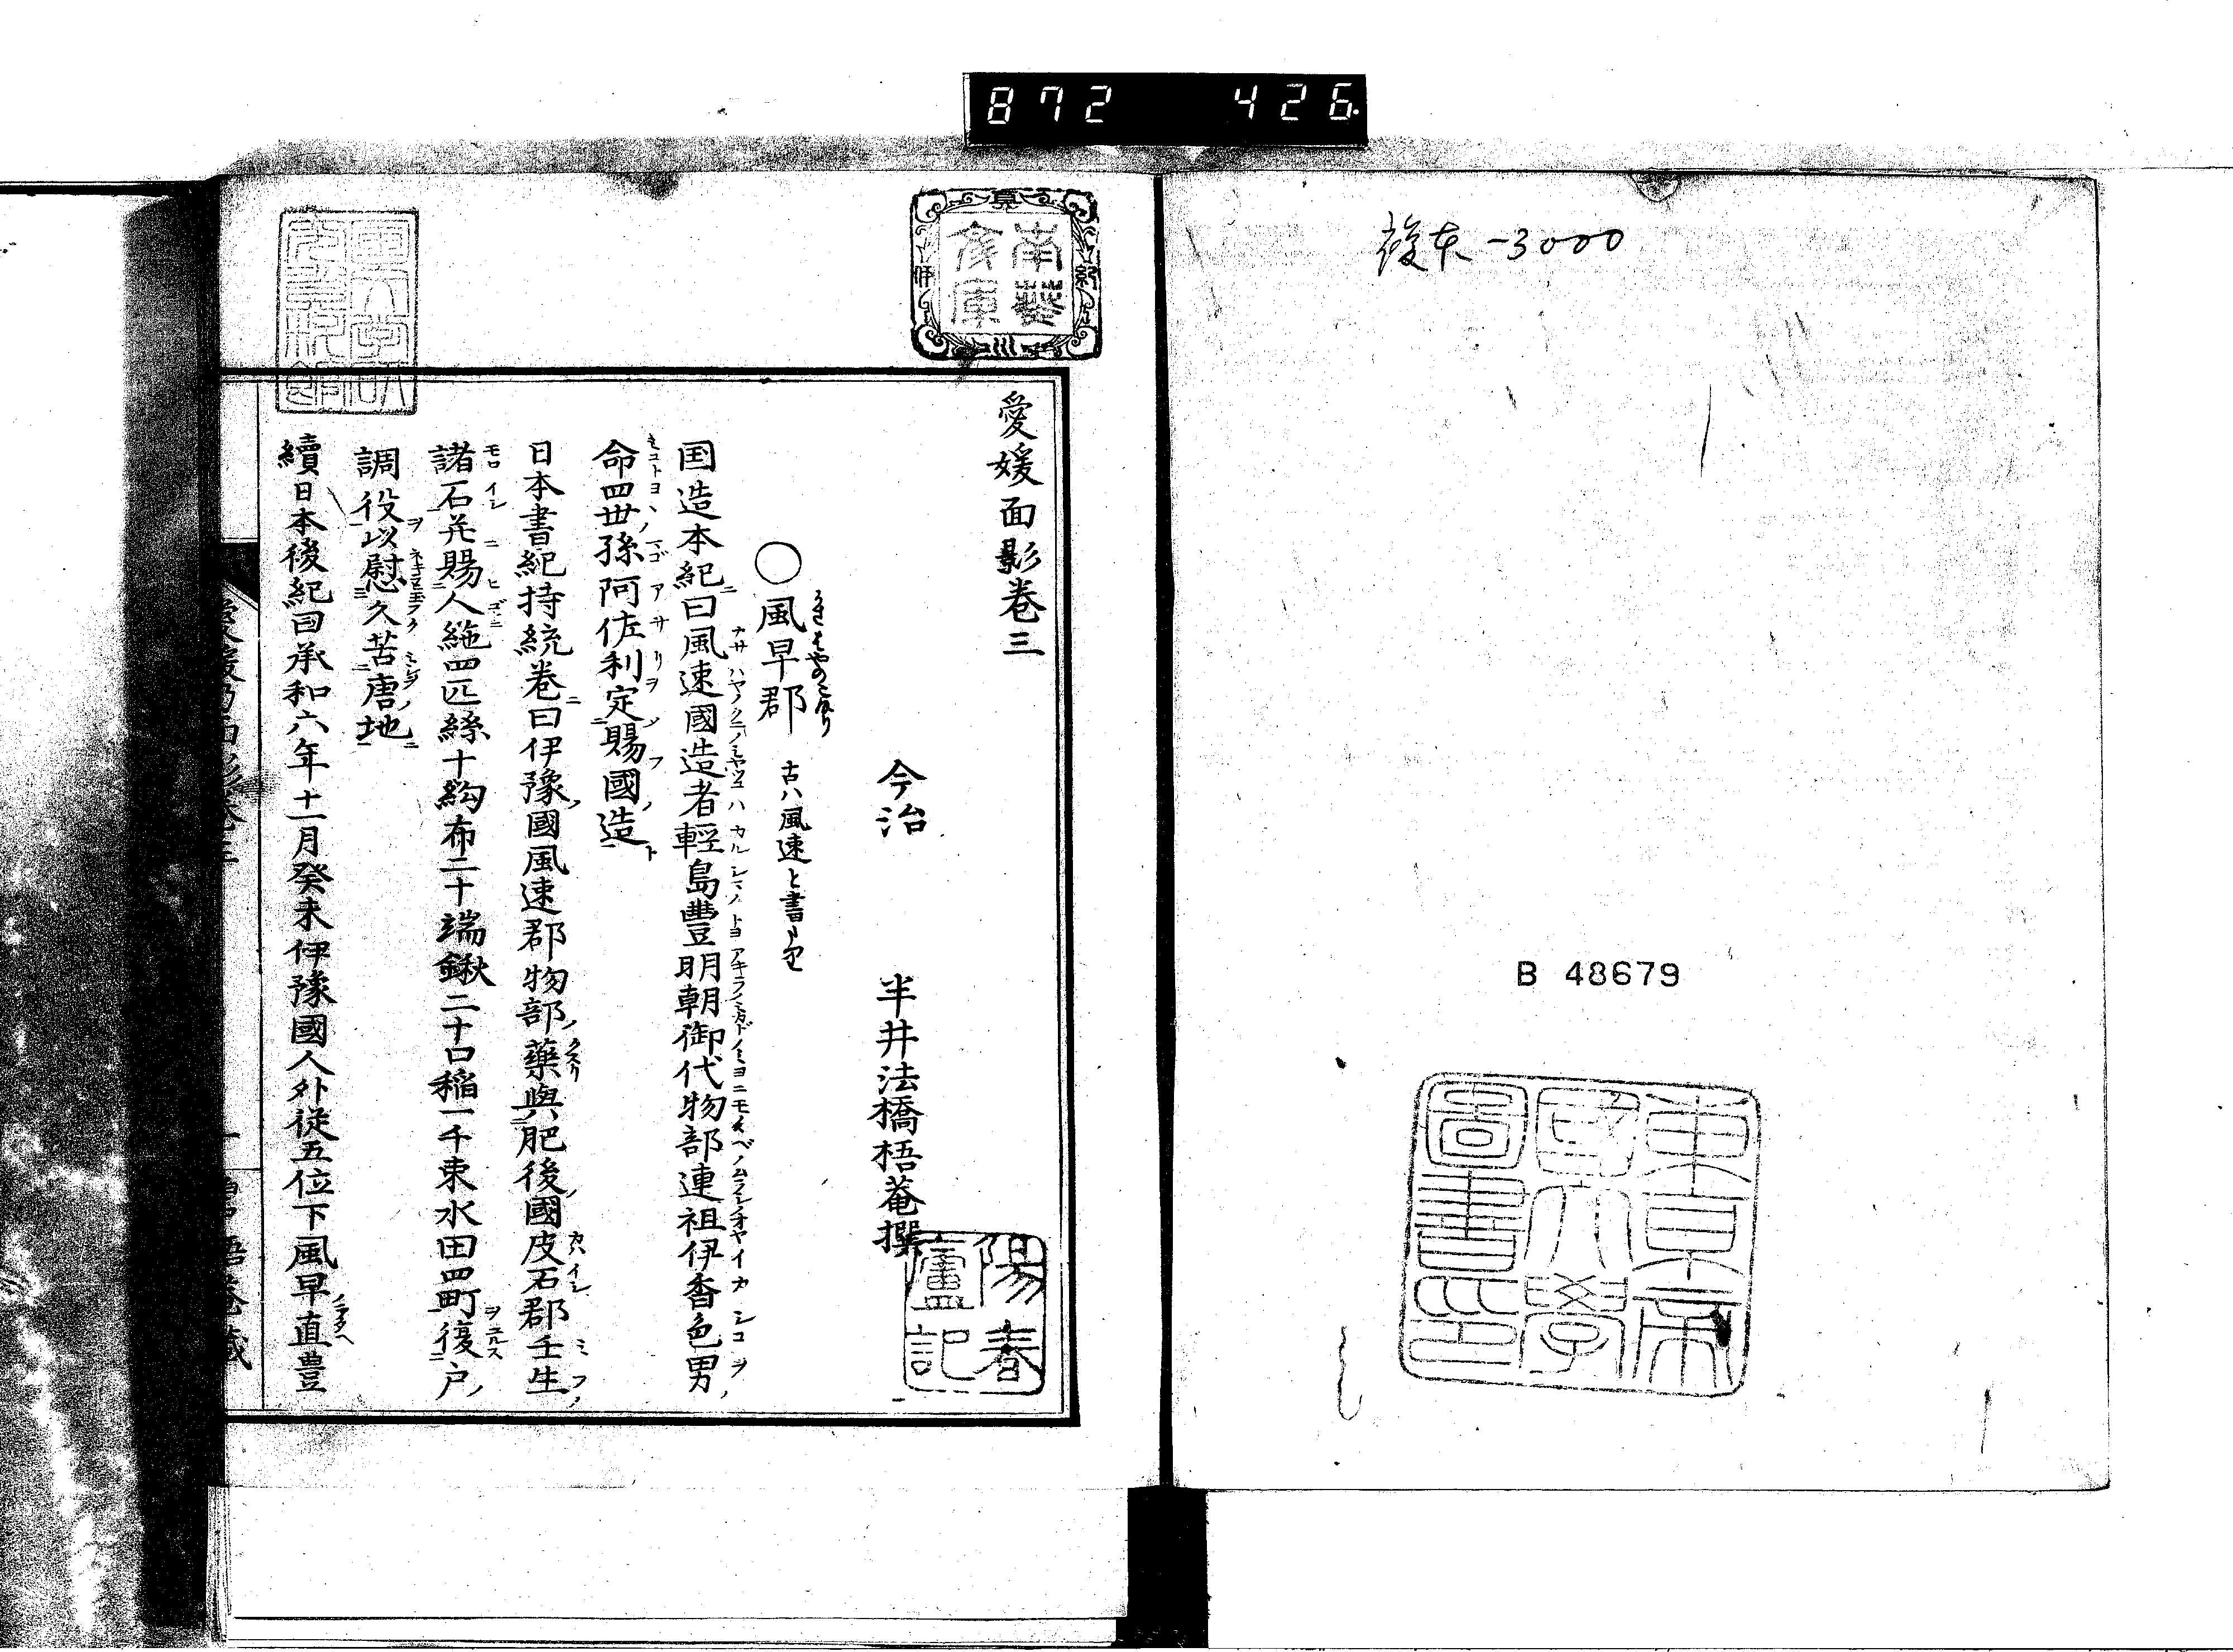 872 426
複本-3000
B 48679
東京帝
國大學
圖書印
南葵
文庫
愛媛面影卷三
今治 半井法橋梧菴撰
陽春
廬記
○風早郡 古ハ風速と書り
国造本紀曰風速國造者輕島豐明朝御代物部連祖伊香色男
命四世孫阿佐利定賜國造
日本書紀持統卷曰伊豫國風速郡物部藥與肥後國皮石郡壬生
諸石并賜人絁四匹絲十絇布二十端鍬二十口稲一千束水田四町復戸
調役以慰久苦唐地
續日本後紀曰承和六年十一月癸未伊豫國人外従五位下風早直豊